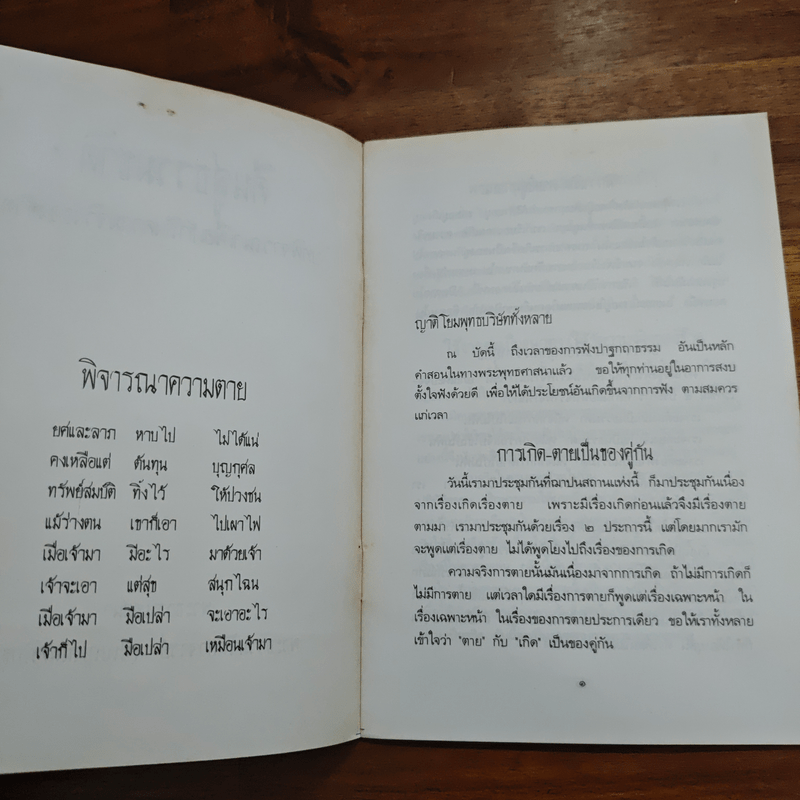 พิจารณาความตาย
ยศและลาภ หาบไป ไม่ได้แน่
คงเหลือแต่ ต้นทุน บุญกุศล
ทรัพย์สมบัติ ทิ้งไว้ ให้ปวงชน
แม้ร่างตน เขาก็เอา ไปเผาไฟ
เมื่อเจ้ามา มีอะไร มาด้วยเจ้า
เจ้าจะเอา แต่สุข สนุกไฉน
เมื่อเจ้ามา มือเปล่า จะเอาอะไร
เจ้าก็ไป มือเปล่า เหมือนเจ้ามา
ญาติโยมพุทธบริษัททั้งหลาย
ณ บัดนี้ ถึงเวลาของการฟังปาฐกถาธรรม อันเป็นหลัก
คำสอนในทางพระพุทธศาสนาแล้ว ขอให้ทุกท่านอยู่ในอาการสงบ
ตั้งใจฟังด้วยดี เพื่อให้ได้ประโยชน์อันเกิดขึ้นจากการฟัง ตามสมควร
แก่เวลา
การเกิด-ตายเป็นของคู่กัน
วันนี้เรามาประชุมกันที่ฌาปนสถานแห่งนี้ ก็มาประชุมกันเนื่อง
จากเรื่องเกิดเรื่องตาย เพราะมีเรื่องเกิดก่อนแล้วจึงมีเรื่องตาย
ตามมา เรามาประชุมกันด้วยเรื่อง ๒ ประการนี้ แต่โดยมากเรามัก
จะพูดแต่เรื่องตาย ไม่ได้พูดโยงไปถึงเรื่องของการเกิด
ความจริงการตายนั้นมันเนื่องมาจากการเกิด ถ้าไม่มีการเกิดก็
ไม่มีการตาย แต่เวลาใดมีเรื่องการตายก็พูดแต่เรื่องเฉพาะหน้า ใน
เรื่องเฉพาะหน้า ในเรื่องของการตายประการเดียว ขอให้เราทั้งหลาย
เข้าใจว่า "ตาย" กับ "เกิด" เป็นของคู่กัน
๑